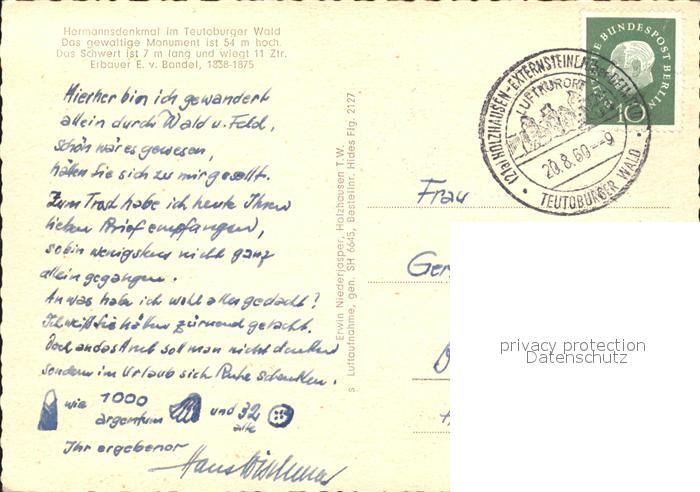 Hermannsdenkmal im Teutoburger Wald
Das gewaltige Monument ist 54 m hoch.
Das Schwert ist 7 m lang und wiegt 11 Ztr.
Erbauer E. v. Bandel, 1838-1875
Hierher bin ich gewandert
allein durch Wald u. Feld,
schön wär es gewesen,
hätten Sie sich zu mir gesellt.
Zum Trost habe ich heute Ihren
lieben Brief empfangen,
so bin wenigstens nicht ganz
allein gegangen.
An was habe ich wohl alles gedacht?
Ich weiß Sie hätten zürnend gelacht.
Doch an das Amt soll man nicht denken
sondern im Urlaub sich Ruhe schenken.
wie 1000
argentum und 32
alte
Ihr ergebener
Hans
Erwin Niederjasper, Holzhausen T.W.
s. Luftaufnahme, gen. SH 6645, Bestellnr. Hldes Flg. 2127
DEUTSCHE BUNDESPOST BERLIN
10
(21a) HOLZHAUSEN-EXTERNSTEINE
LUFTKURORT
20.8.60--9
TEUTOBURGER WALD
Frau
Ger
privacy protection
Datenschutz